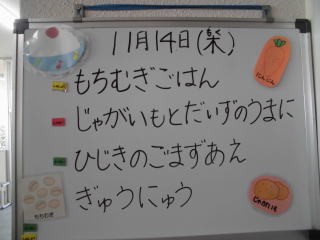 11月14日(木)
もちむぎごはん
じゃがいもとだいずのうまに
ひじきのごまずあえ
ぎゅうにゅう
にんじん
もちむぎ
じゃがいも